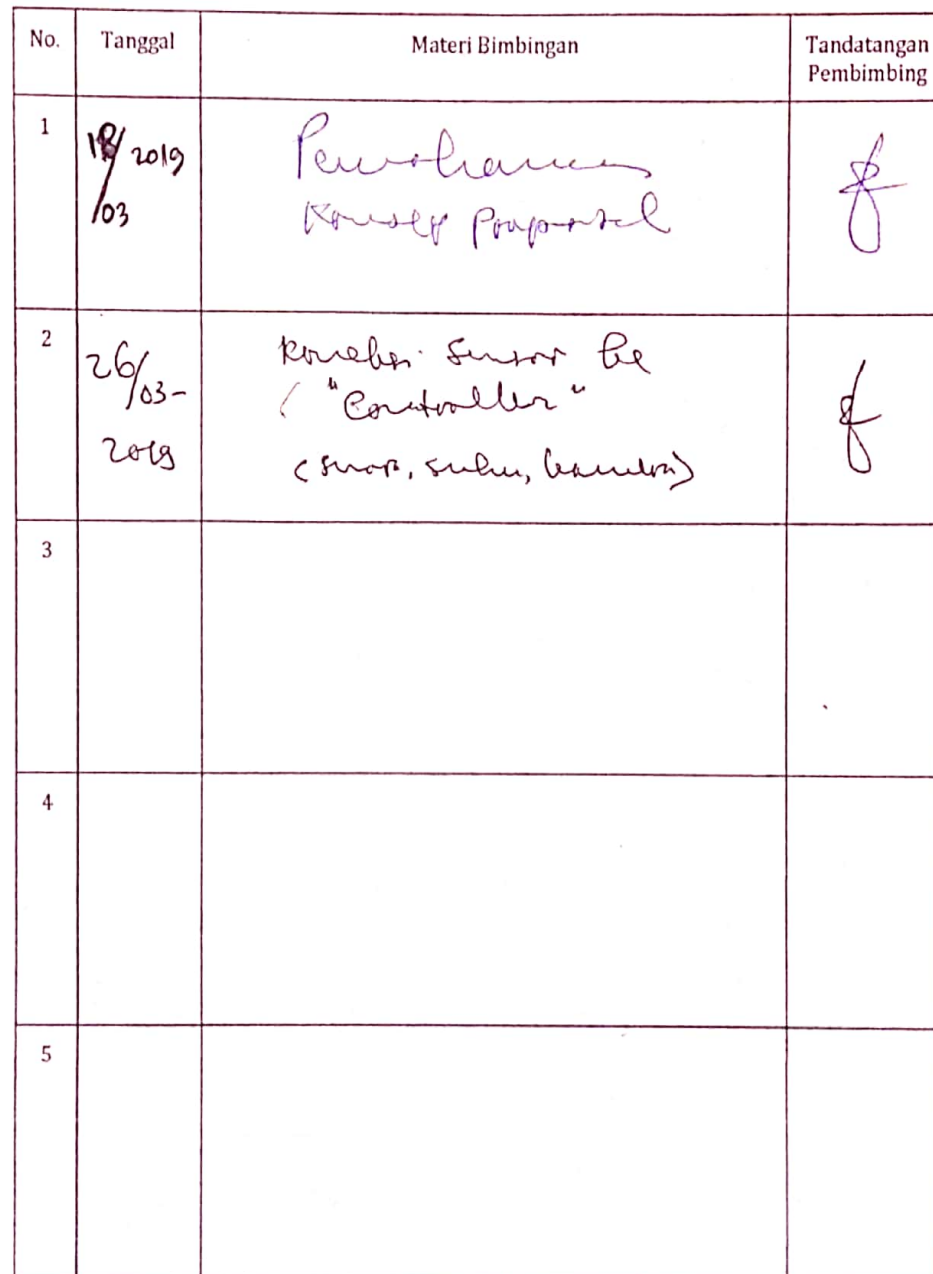 No. Tanggal Materi Bimbingan Tandatangan
Pembimbing
1
18/03 2019
Konsep Proposal
2
26/03-
2019
Koneksi Sensor ke
"Controller"
suhu,
3
4
5